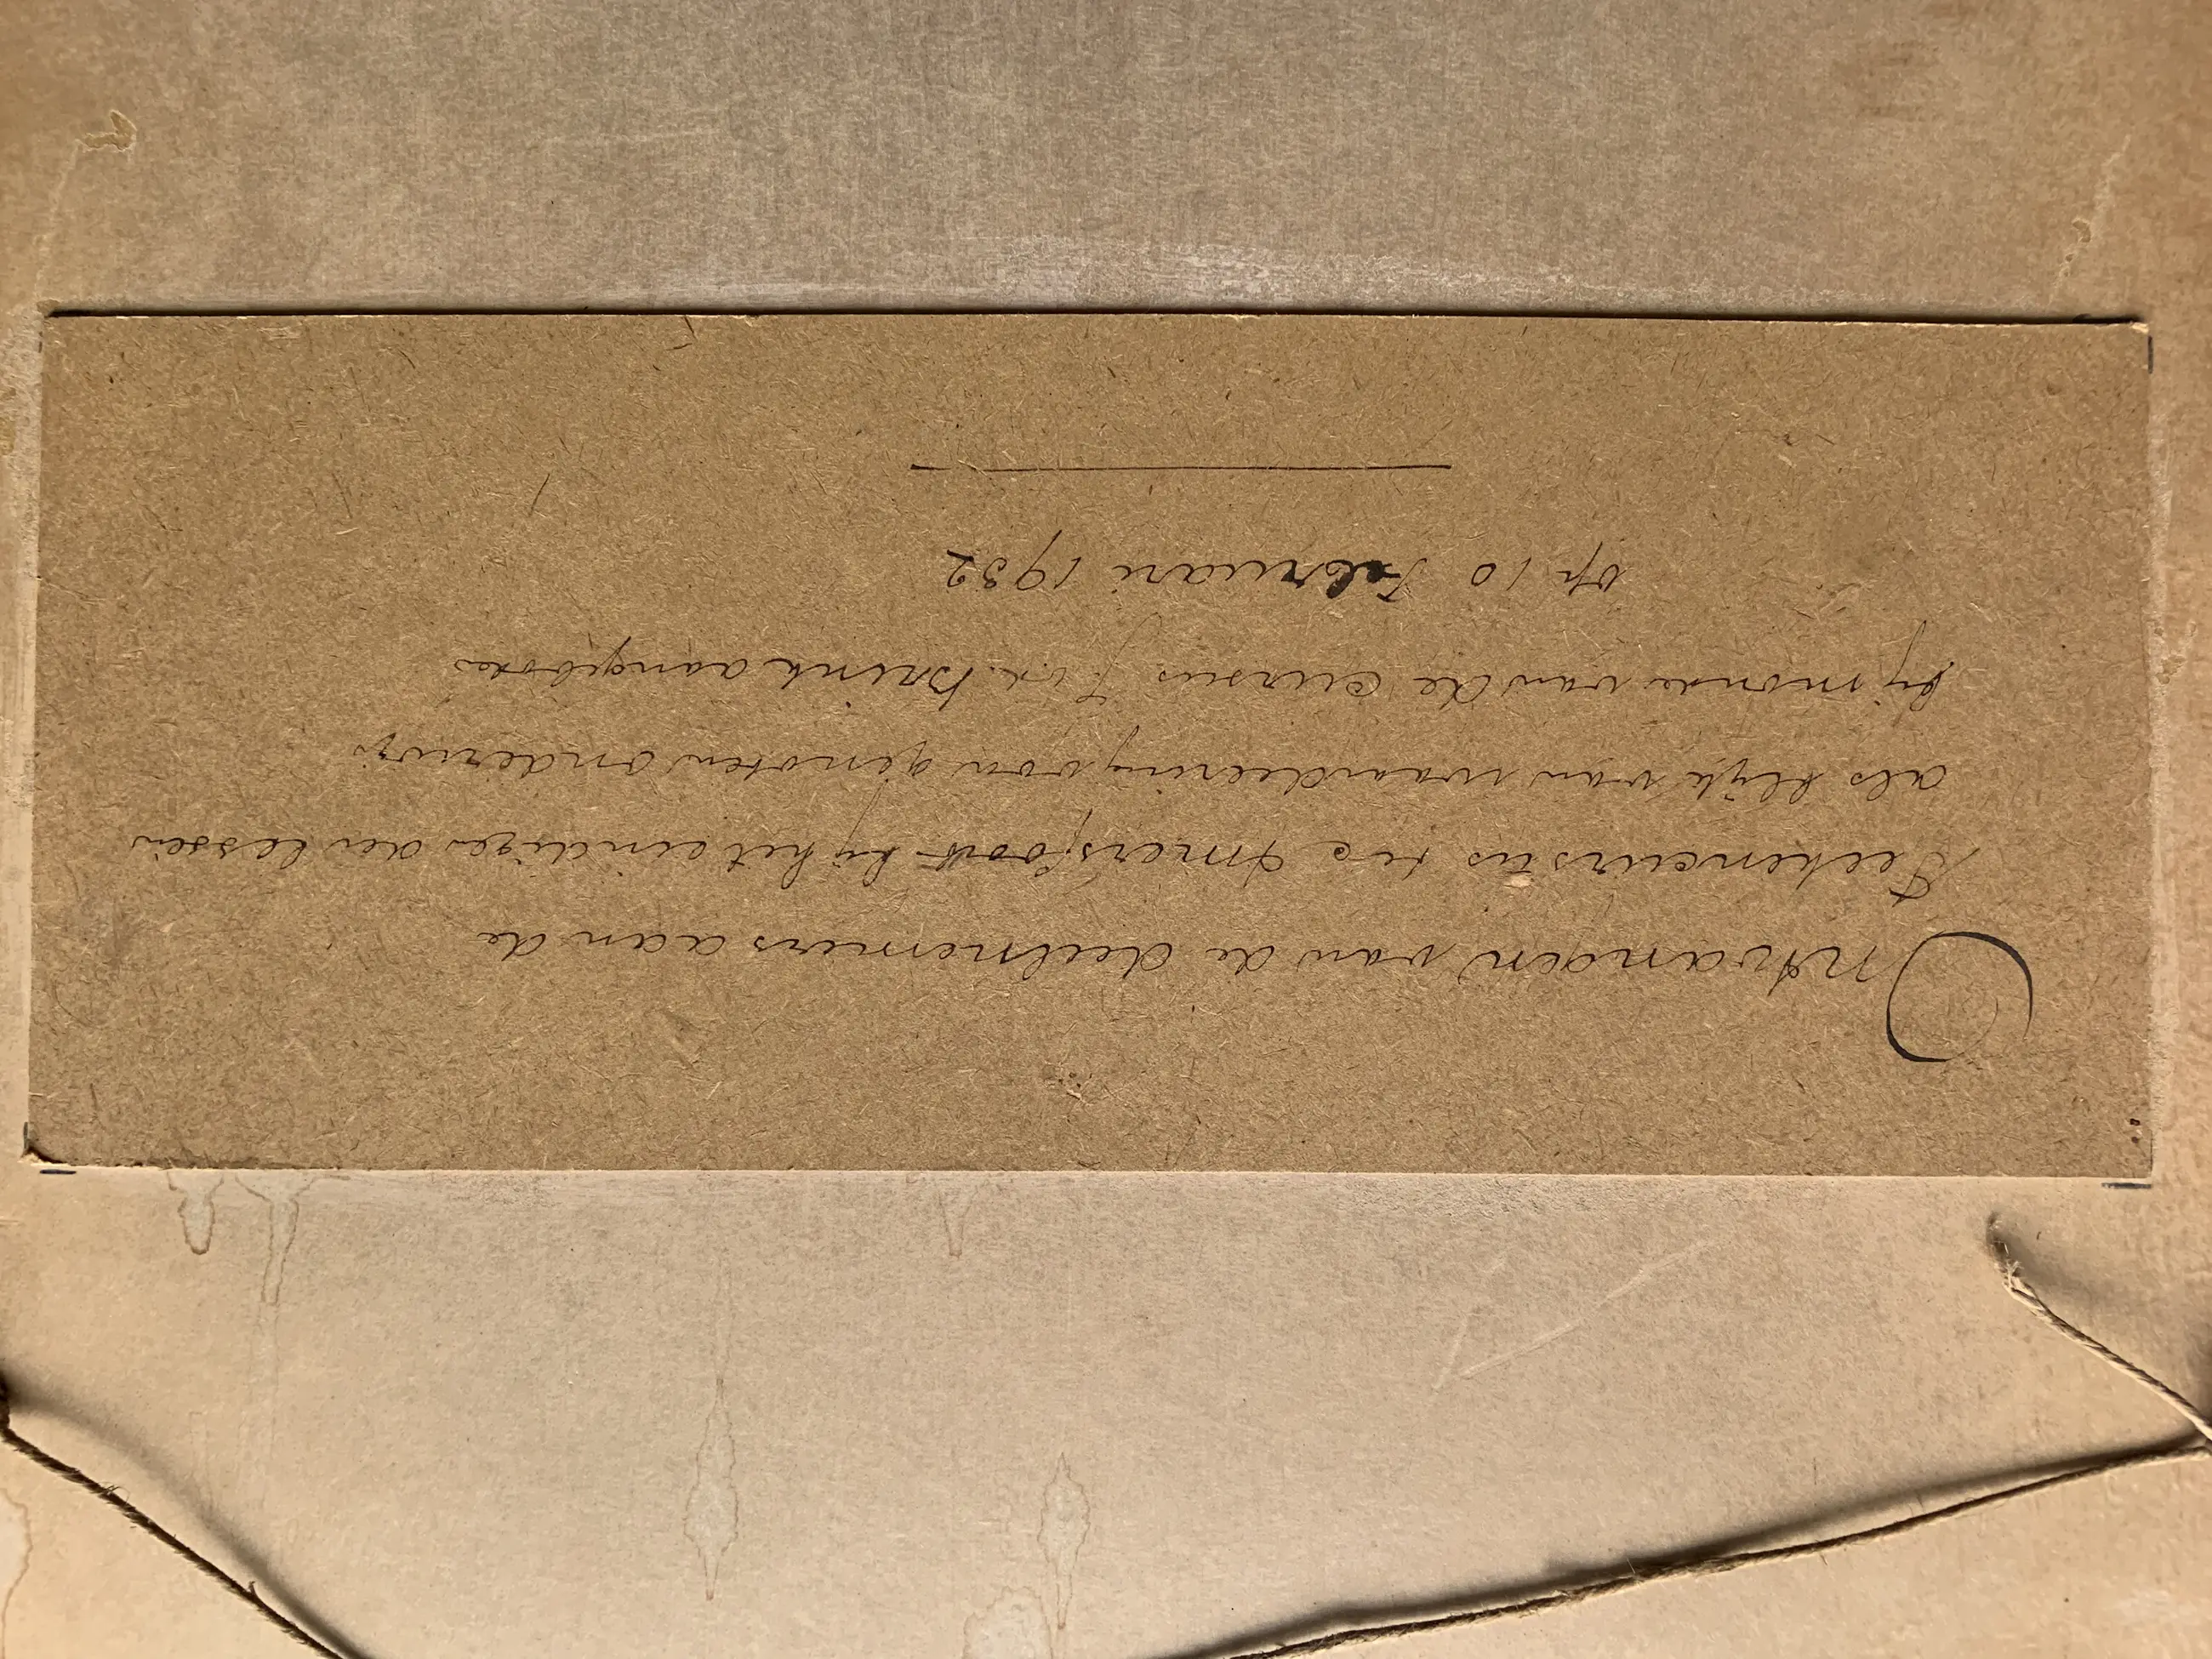 Ontvangen van de deelnemers aan de
Teekencursus te Amersfoort bij het eindigen der lessen
als blijk van waardeering voor genoten onderwijs
bij monde van de cursus Brink aangeboden
op 10 Februari 1932